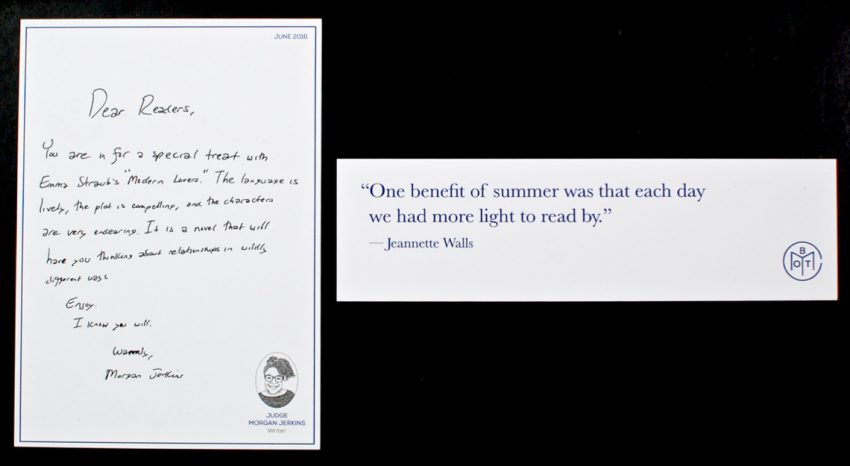 JUNE 2016
Dear Readers,
You are in for a special treat with
Emma Straub's "Modern Lovers." The language is
lively, the plot is compelling, and the characters
are very endearing. It is a novel that will
have you thinking about relationships in wildly
different ways.
Enjoy.
I know you will.
Warmly,
Morgan Jerkins
JUDGE
MORGAN JERKINS
Writer
“One benefit of summer was that each day
we had more light to read by.”
— Jeannette Walls
B
O T
M